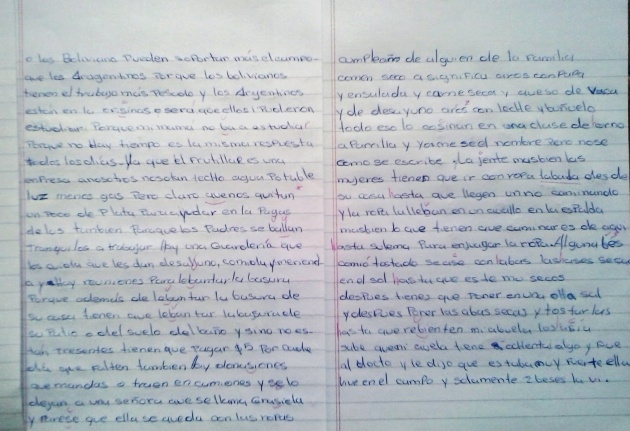 e los Boliviano Pueden soportar más el campo
que los Aragentinos Porque los bolivianos
tienen el trabajo más Pesado y los Argentinos
están en la oficinas o sera que ellos Pudieron
estudiar. Porque mi mama no ba a estudiar
Porque no hay tiempo es la misma respuesta
todos los días. Ya que el Frutillar es una
enfresa a nosotros nos dan leche agua Potable
luz menos gas Pero claro que nos quitan
un Poco de Plata Para ayudar en la Paga
de lus tunbien Paraque los Padres se ballan
Tranquilos a trabajar hay una Guardería que
les cuida que les dan desalluno, comida y meriend
a y hay reuniones Para lebantar la basura
Porque además de lebantar la basura de
su casa tienen que lebantar la basura de
su Patio o del suelo del baño y si no es-
tan Presentes tienen que Pagar $5 Por cada
día que falten tambien hay donasiones
que mandas o traen en camiones y se lo
dejan a una señora que se llama Grasiela
y Parese que ella se queda con las ropas
cumpleaño de alguien de la Familia
comen seco a significa arros con Papa
y ensalada y carne seca y queso de Vaca
y de desayuno arós con leche y buñuelo
todo eso lo cosinan en una clase de horno
a Parrilla y yo me sé el nombre Pero nose
como se escribe, La jente mas bien las
mujeres tienen que ir con ropa labada desde
su casa hasta que llegen un rio caminando
y la ropa la lleban en un en la espalda
mas bien lo que tienen que caminar es de aquí
hasta sulema Para enjuagar la ropa. Alguna bes
comió tostado se ase con labas las ases secar
en el sol hasta que este mu secos
despues tienes que Poner en una olla sal
y despues Poner las abas secas y tostarlas
hasta que rebienten mi abuela los
sabe que mi avela tiene dolienta algo y fue
al docto y le dijo que estuba muy fuerte ella
vive en el campo y solamente 2 beses la vi.